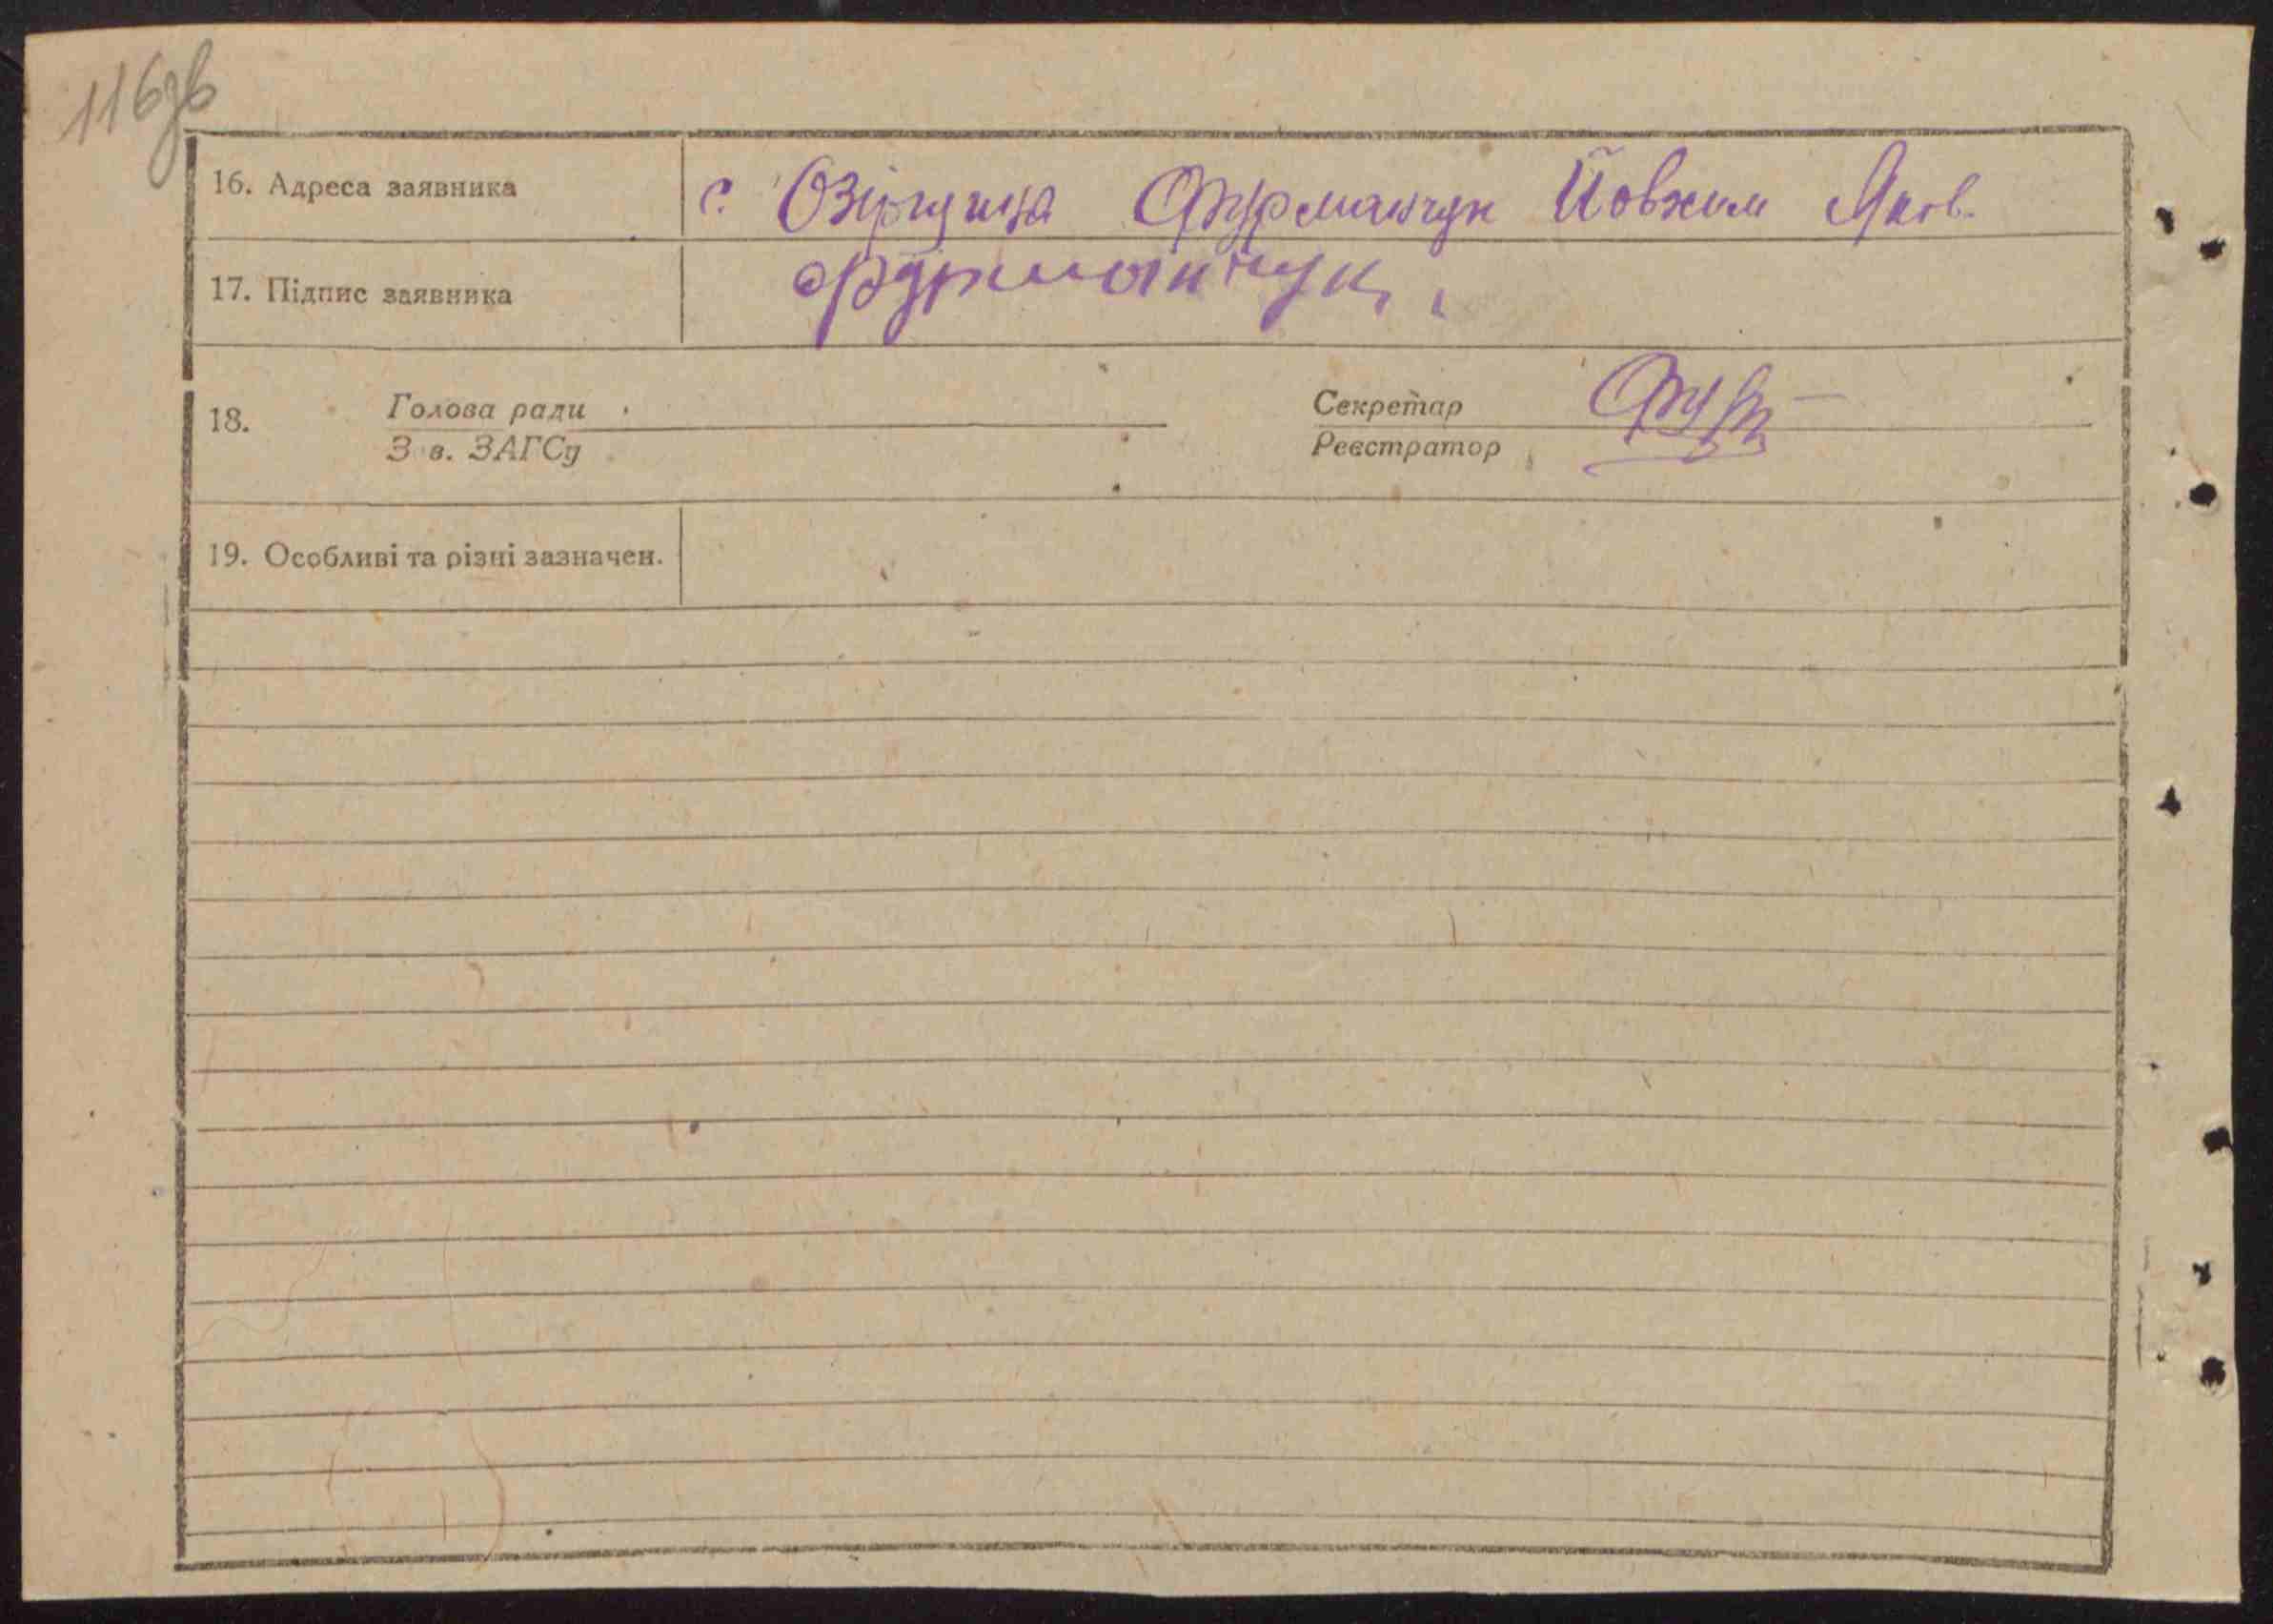 116зв
16. Адреса заявника с. Озірщина Фурманчук Йовхим Яков.
17. Підпис заявника Фурманчук
18. Голова ради Секретар
З в. ЗАГСу Реєстратор
19. Особливі та різні зазначен.